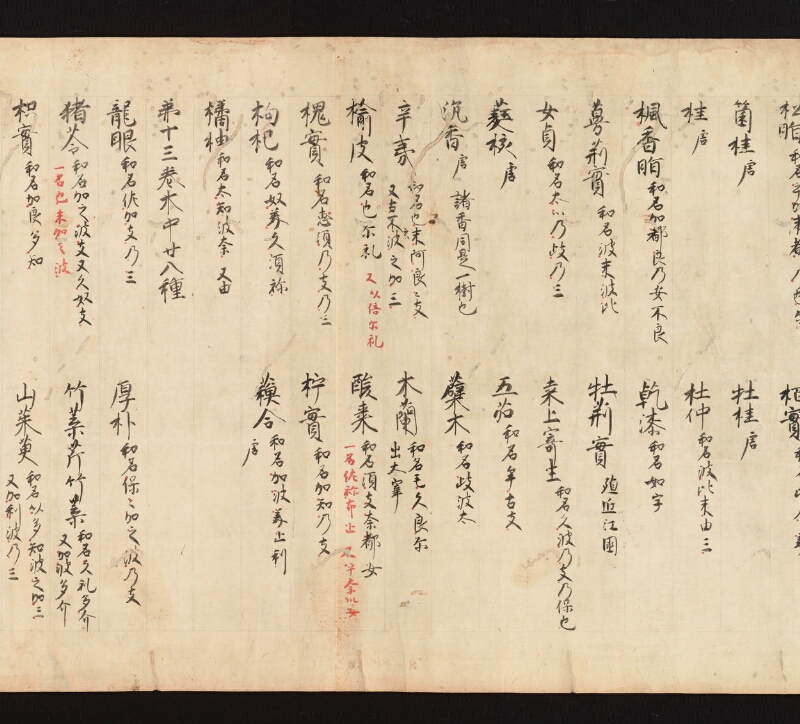 箘桂 唐
牡桂 唐
桂 唐
杜仲 和名波比末由三
楓香脂 和名加都良乃安不良
乾漆 和名如字
蔓荊實 和名波末波比
牡荊實 殖近江國
女貞 和名太川乃岐乃三
桒上寄生 和名久波乃支乃保也
蕤核 唐
五茄 和名牟古支
沉香 唐 諸香同是一樹也
蘗木 和名岐波太
辛夷 和名也末阿良々支
又古不波之加三
木蘭 和名毛久良尓
出大宰
榆皮 和名也尓礼 又以倍尓礼
酸棗 和名須支奈都女
一名佐祢布止
槐實 和名恵須乃支乃三
柠實 和名加知乃支
枸杞 和名奴美久須祢
蘓合 和名加波美止利
唐
橘柚 和名太知波奈 又由
第十三巻木中廿八種
龍眼 和名佐加支乃三
厚朴 和名保々加之波乃支
猪苓 和名加之波支又久奴支
一名也末加之波
竹葉芹竹葉 和名久礼多介
又加波多介
枳實 和名加良多知
山茱萸 和名以多知波之加三
又加利波乃三